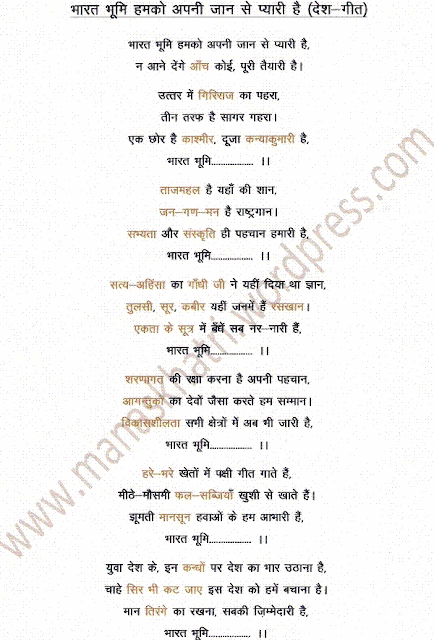 भारत भूमि हमको अपनी जान से प्यारी है (देश–गीत)
भारत भूमि हमको अपनी जान से प्यारी है,
न आने देंगे आँच कोई, पूरी तैयारी है।
उत्तर में गिरिराज का पहरा,
तीन तरफ है सागर गहरा।
एक छोर है काश्मीर, दूजा कन्याकुमारी है,
भारत भूमि.................. ।।
ताजमहल है यहाँ की शान,
जन–गण–मन है राष्ट्रगान।
सभ्यता और संस्कृति ही पहचान हमारी है,
भारत भूमि.................. ।।
सत्य–अहिंसा का गाँधी जी ने यहीं दिया था ज्ञान,
तुलसी, सूर, कबीर यहीं जनमें हैं रसखान।
एकता के सूत्र में बँधें सब नर–नारी हैं,
भारत भूमि.................. ।।
शरणागत की रक्षा करना है अपनी पहचान,
आगन्तुकों का देवों जैसा करते हम सम्मान।
विकासशीलता सभी क्षेत्रों में अब भी जारी है,
भारत भूमि.................. ।।
हरे–भरे खेतों में पक्षी गीत गाते हैं,
मीठे–मौसमी फल–सब्जियाँ खुशी से खाते हैं।
झूमती मानसून हवाओं के हम आभारी हैं,
भारत भूमि.................. ।।
युवा देश के, इन कन्धों पर देश का भार उठाना है,
चाहे सिर भी कट जाए इस देश को हमें बचाना है।
मान तिरंगे का रखना, सबकी ज़िम्मेदारी है,
भारत भूमि.................. ।।
www.manaskhatri.wordpress.com